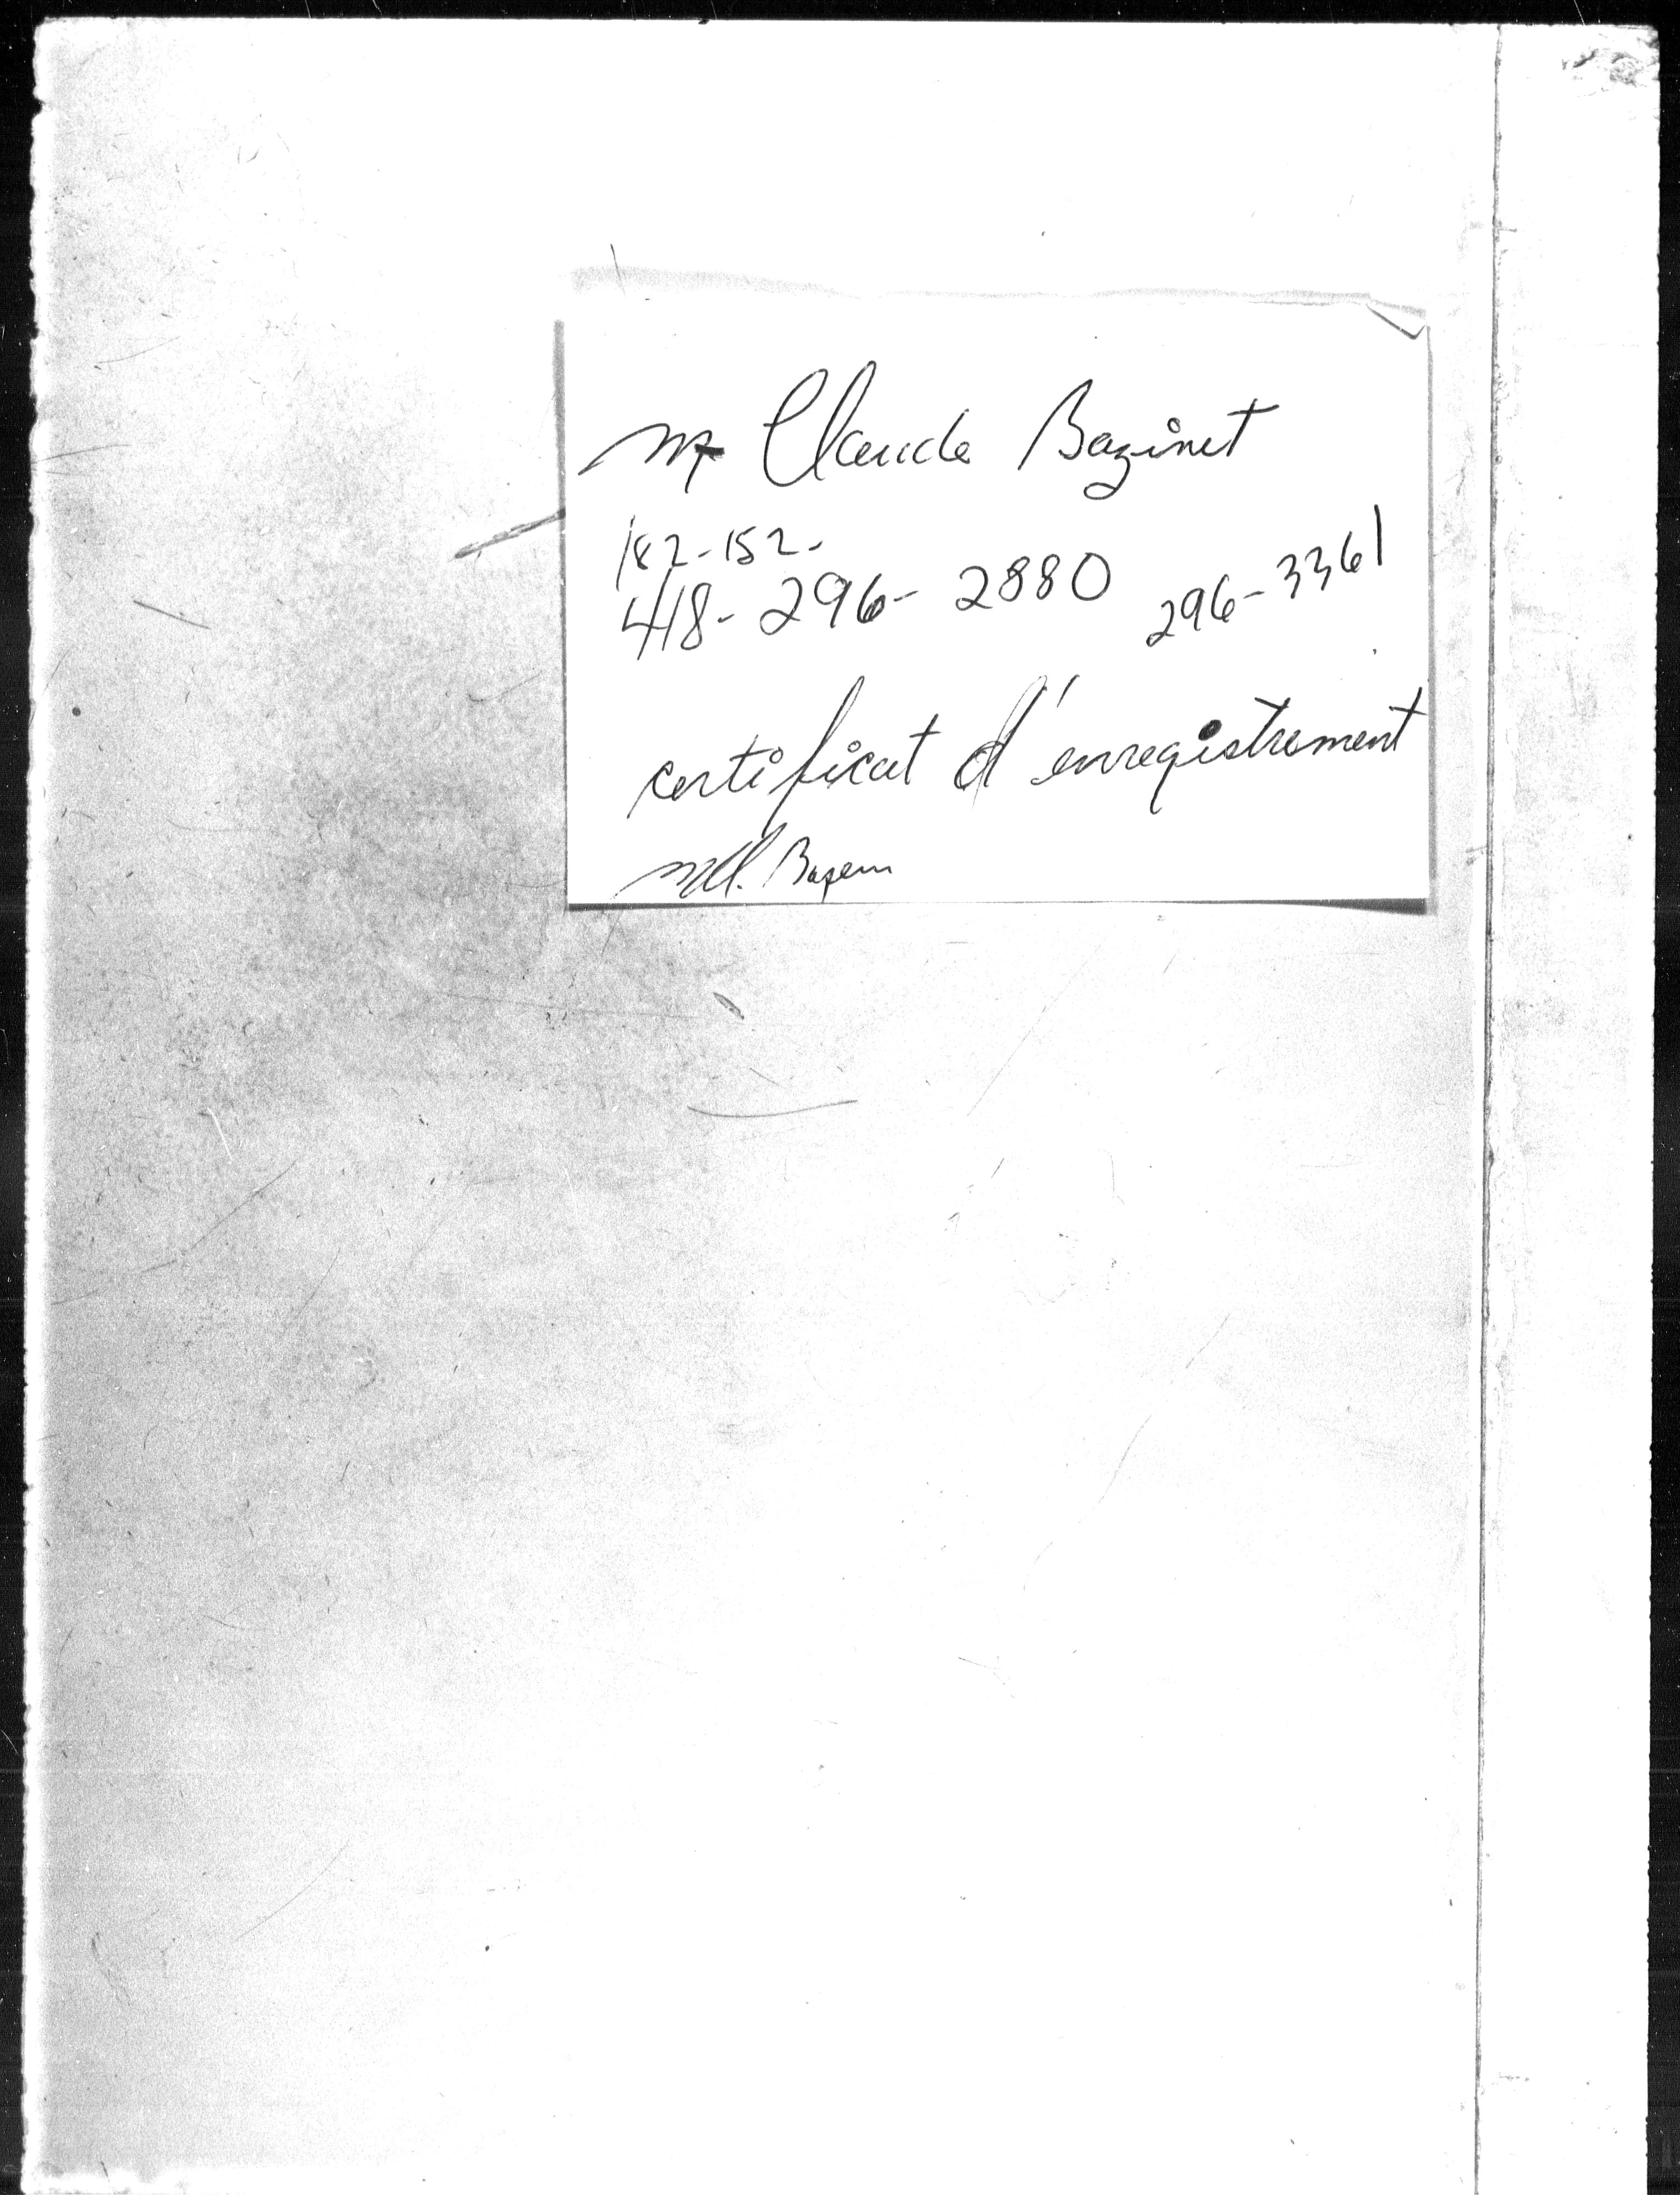 Mr Claude Bazinet
182-152-
418-296-2880 296-3361
certificat d'enregistrement
Mll.